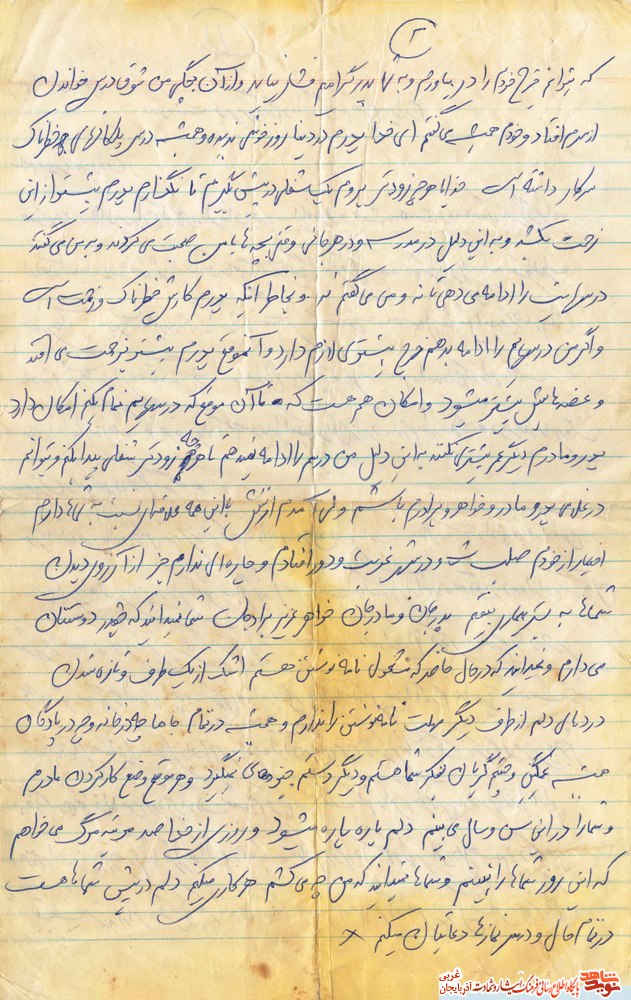 ۲
که بتوانم خرج خودم را در بیاورم و به پدر گرامیم فشار نیاید و از آن بچگی من شوق درس خواندن
از سرم افتاد و خودم همیشه می گفتم ای خدا پدرم در دنیا روز خوشی ندیده و همیشه در پله کانهای خطرناک
سر کار داشته است خدایا هر چه زودتر بروم یک شغلی در پیش بگیرم تا نگذارم پدرم بیشتر از این
زحمت بکشد و به این دلیل در مدرسه و در هر جائی وقتی بچه ها با من صحبت می کردند و به من می گفتند
درسهایت را ادامه می دهی یا نه و من می گفتم نه بخاطر اینکه پدرم کارش خطرناک و زحمت است
و اگر من درسهایم را ادامه بدهم خرج بیشتری لازم دارد و آنموقع پدرم بیشتر بزحمت می افتد
و غصه هایش بیشتر میشود و امکان هم هست که تا آن موقع که درسهایم تمام بکنم امکان دارد
پدر و مادرم دیگر عمر بیشتری نکنند به این دلیل من درسم را ادامه نمیدهم تا هر چه زودتر شغلی پیدا بکنم و بتوانم
در غلامی پدر و مادر و خواهر و برادرم باشم ولی آمدم ارتش با این همه علاقه ای نسبت به شماها دارم
اختیار از خودم سلب شد و در شهر غربت و دور افتادم و چاره ای ندارم جز از آرزوی دیدن
شماها به بستر بیماری بیفتم پدر جان و مادر جان خواهر عزیز برادران شما نمیدانید که چقدر دوستتان
می دارم و نمیدانید که در حال حاضر که مشغول نامه نوشتن هستم اشک از یک طرف و تازه شدن
درد های دلم از طرف دیگر مهلت نامه نوشتن را ندارم و همیشه در تمام جاها چه در خانه و چه در پادگان
همیشه غمگین و چشم گریان بفکر شما هستم و دیگر دستم چیزهای نمیگیرد و هر موقع وضع کار کردن مادرم
و شما را در این سن و سال می بینم دلم پاره پاره میشود و روزی از خدا صد مرتبه مرگ می خواهم
که این روز شماها را نبینم و شماها نمیدانید که من چه می کشم هر کاری میکنم دلم در پیش شماها هست
در تمام حال و در سر نمازها دعایتان میکنم
نوید شاهد
آذربایجان غربی
پایگاه اطلاع رسانی فرهنگ ایثار و شهادت